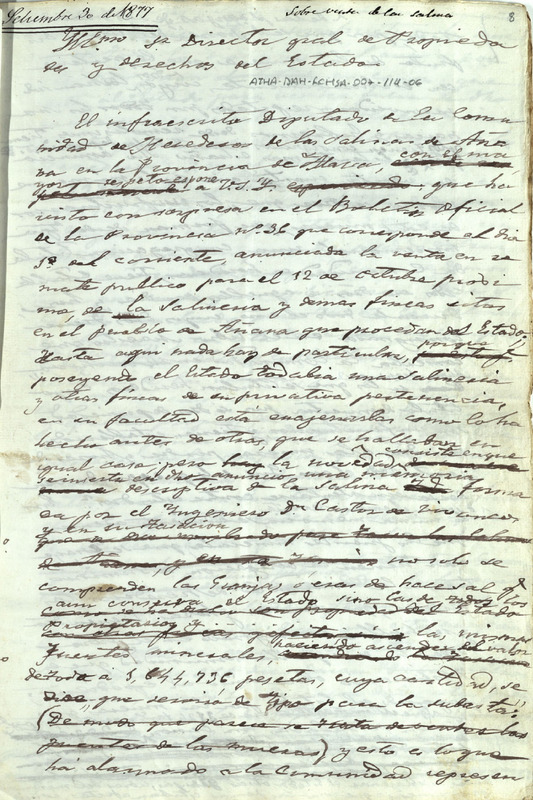 Setiembre 30 de 1877 Sobre venta de las salinas 8
Yllmo Sr Director gral de Propieda
des y derechos del Estado
ATHA-DAH-FCHSA-007-114-06
El infraescrito Diputado de la Comu
nidad de Herederos de las Salinas de Aña
na en la Provincia de Alava, con el ma
yor respeto espone
a V.S.Y. esponiendo, que ha
visto con sorpresa en el Boletin Oficial
de la Provincia nº 36 que corresponde al dia
del corriente, anunciada la venta en re
mate publico para el 12 de Octubre proxi
mo, de la Salineria y demas fincas sitas
en el pueblo de Añana que procedan del Estado;
Hasta aqui nada hay de particular, porque
poseyendo el Estado todabia una Salineria
y otras fincas de su privativa pertenencia,
en su facultad está enagenarlas como lo ha
hecho antes de otras, que se hallaban en
igual caso, pero la novedad consiste en que
se inserta en dho anuncio una
descriptiva de la Salina forma
da por el Yngeniero Dn Castor de
y en su tasacion
no solo se
comprenden las Granjas ó eras de hacer sal qe
aun conserba el Estado sino las de otros
Propietarios y
las mismas
fuentes minerales, haciendo ascender el valor
de todo á 3,644,736 pesetas, cuya cantidad, se
dice, que servirá de tipo para la subasta;
(De modo que parece se trata de vender las
fuentes de las mueras) y esto es lo que
há alarmado a la Comunidad represen